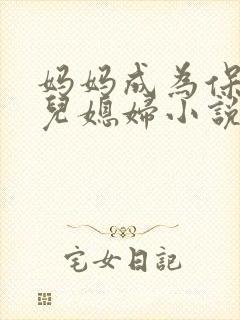 妈妈成為保
兒媳婦小說
宅女日記